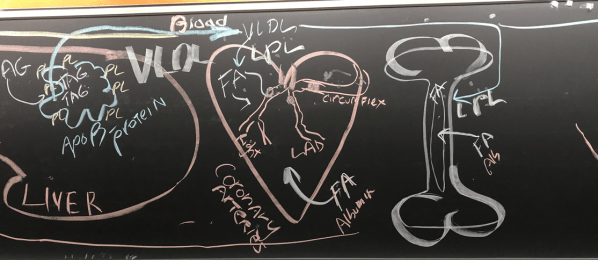 Blood
VLDL
LPL
VLDL
AG
PL
PL
PL
TAG
PL
TAG
PL
PL
ApoB protein
LIVER
FA
circumflex
LAD
Coronary
Arteries
FA
Albumin
LPL
FA
Alb